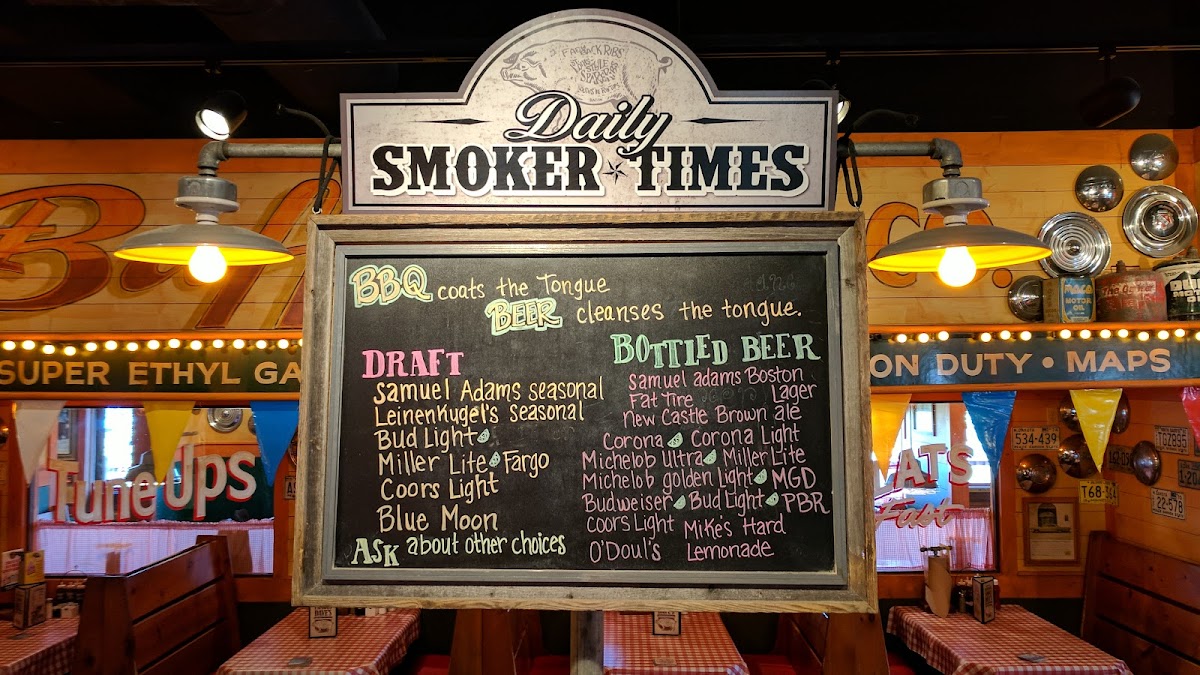 Daily
SMOKER TIMES
BBQ coats the Tongue
BEER cleanses the tongue.
DRAFT
Samuel Adams seasonal
Leinenkugel's seasonal
Bud Light
Miller Lite Fargo
Coors Light
Blue Moon
ASK about other choices
BOTTLED BEER
Samuel adams Boston
Lager
Fat Tire
New Castle Brown ale
Corona Corona Light
Michelob Ultra Miller Lite
Michelob golden Light MGD
Budweiser Bud Light PBR
coors Light Mike's Hard
O'Doul's Lemonade
SUPER ETHYL GA
ON DUTY • MAPS
Tune Ups
EATS
Fast
534-439
T68-564
22-578
TG7895
MOTOR
OIL